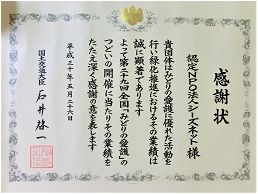 感謝状
認定NPO法人シーズネット 様
貴団体はみどりの愛護に優れた活動を
行い緑化推進におけるその業績は
誠に顕著であります
よって第二十九回全国「みどりの愛護」の
つどいの開催に当たりその業績を
たたえ深く感謝の意を表します
平成三十年五月二十六日
国土交通大臣 石井啓一